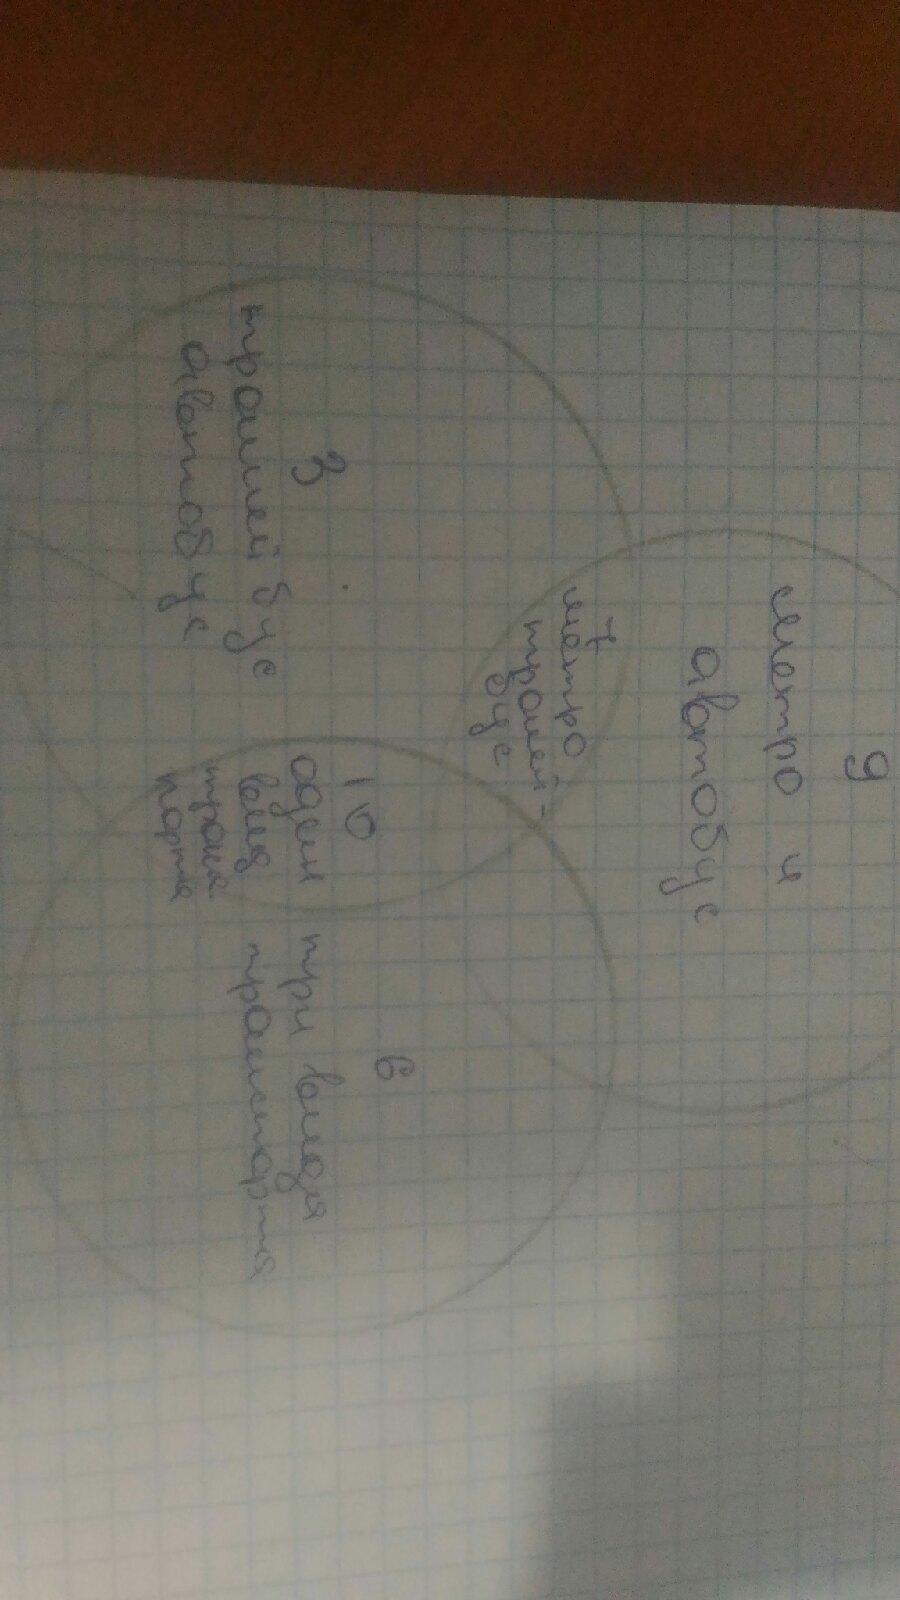 9
метро и
автобус
7
метро
троллей-
бус
3
троллейбус
автобус
10
один
вид
транс-
порта
6
три вида
транспорта